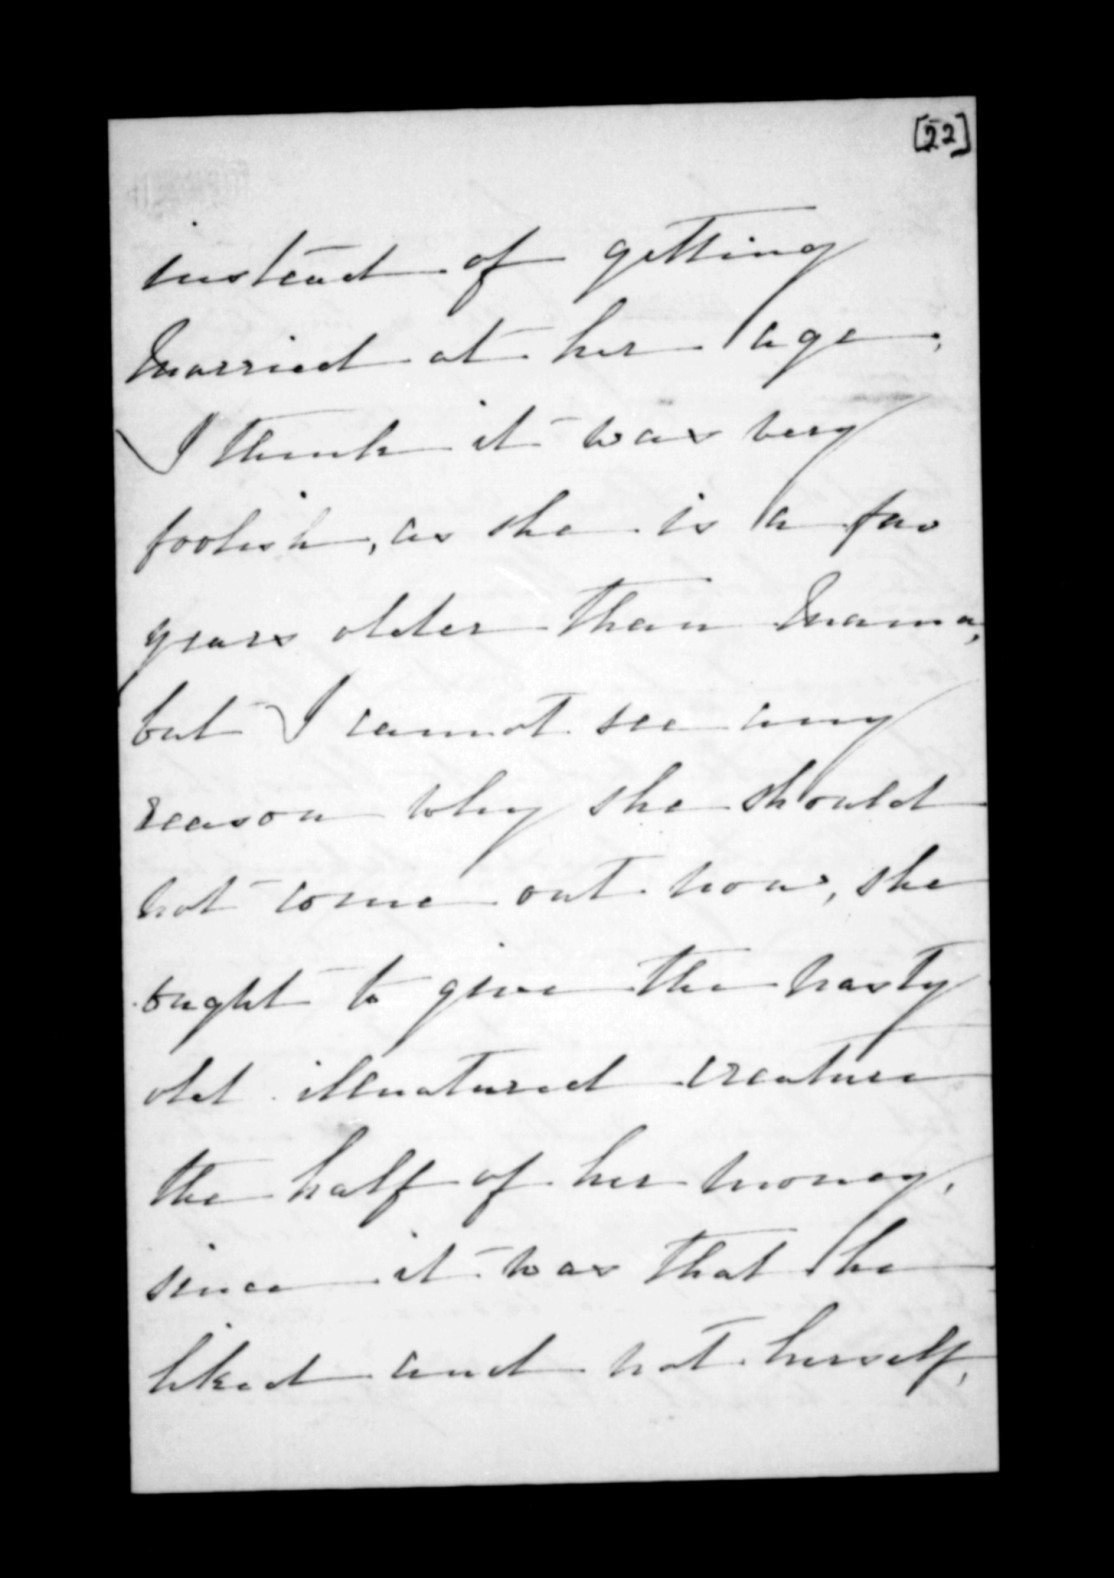 [22]
instead of getting
Married at her age,
I think it was very
foolish, as she is a few
years older than Mama,
but I cannot see any
reason why she should
not come out now, she
ought to give the nasty
old illnatured creature
the half of her money,
since it was that he
liked and not herself,